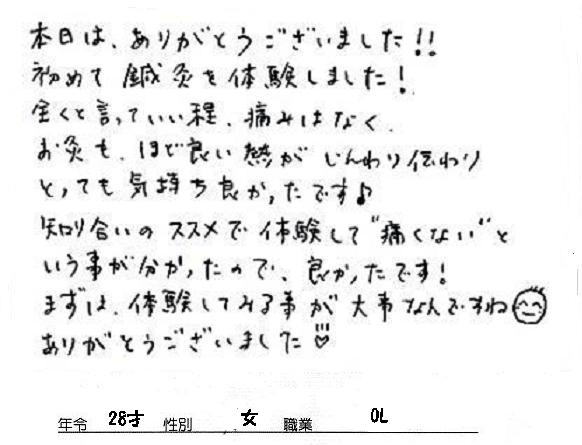 本日は、ありがとうございました!!
初めて鍼灸を体験しました!
全くと言っていい程、痛みはなく、
お灸も、ほど良い熱がじんわり伝わり
とっても気持ち良かったです♪
知り合いのススメで体験して"痛くない"と
いう事が分かったので、良かったです!
まずは、体験してみる事が大事なんですね
ありがとうございました
年令 28才 性別 女 職業 OL